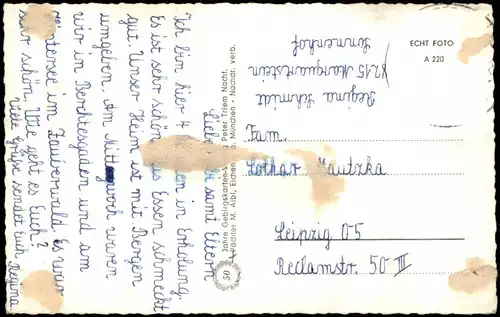 Liebe samt Eltern
Ich bin hier 4 in Erholung.
Es ist sehr schön, das Essen schmeckt
gut. Unser Heim ist mit Bergen
umgeben. Am Mittwoch waren
wir in Berchtesgaden und am
Hintersee im Zauberwald es war
sehr schön. Wie geht es Euch?
Viele Grüße sendet Euch Regina
50 Jahre Gebirgskarten-Peter Triem Nacht.
Pächter M. Aibl, Eichen München - Nachdr. verb.
Regina Schmidt
8215 Marquartstein
Sonnenhof
ECHT FOTO
A 220
Fam.
Lothar
Leipzig 05
Reclamstr. 50 III